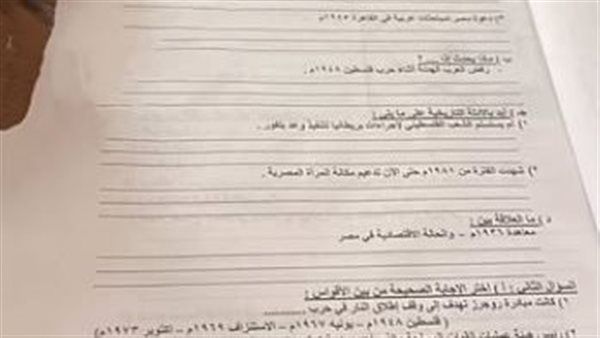 ٣) دعوة مصر لمباحثات عربية في القاهرة ١٩٤٥م
ب ) ماذا يحدث لو .... ؟
رفض العرب الهدنة أثناء حرب فلسطين ١٩٤٨م.
جـ ) أيد بالأدلة التاريخية على ما يلي :
١) لم يستسلم الشعب الفلسطيني لإجراءات بريطانيا لتنفيذ وعد بلفور.
٢) شهدت الفترة من ١٩٨١م حتى الآن تدعيم مكانة المرأة المصرية .
د ) ما العلاقة بين :
معاهدة ١٩٣٦م – والحالة الاقتصادية في مصر
السؤال الثاني : أ ) اختر الإجابة الصحيحة من بين الأقواس :
١) كانت مبادرة روجرز تهدف إلى وقف إطلاق النار في حرب ..........
( فلسطين ١٩٤٨م – يونيه ١٩٦٧م – الاستنزاف ١٩٦٩م – أكتوبر ١٩٧٣م )